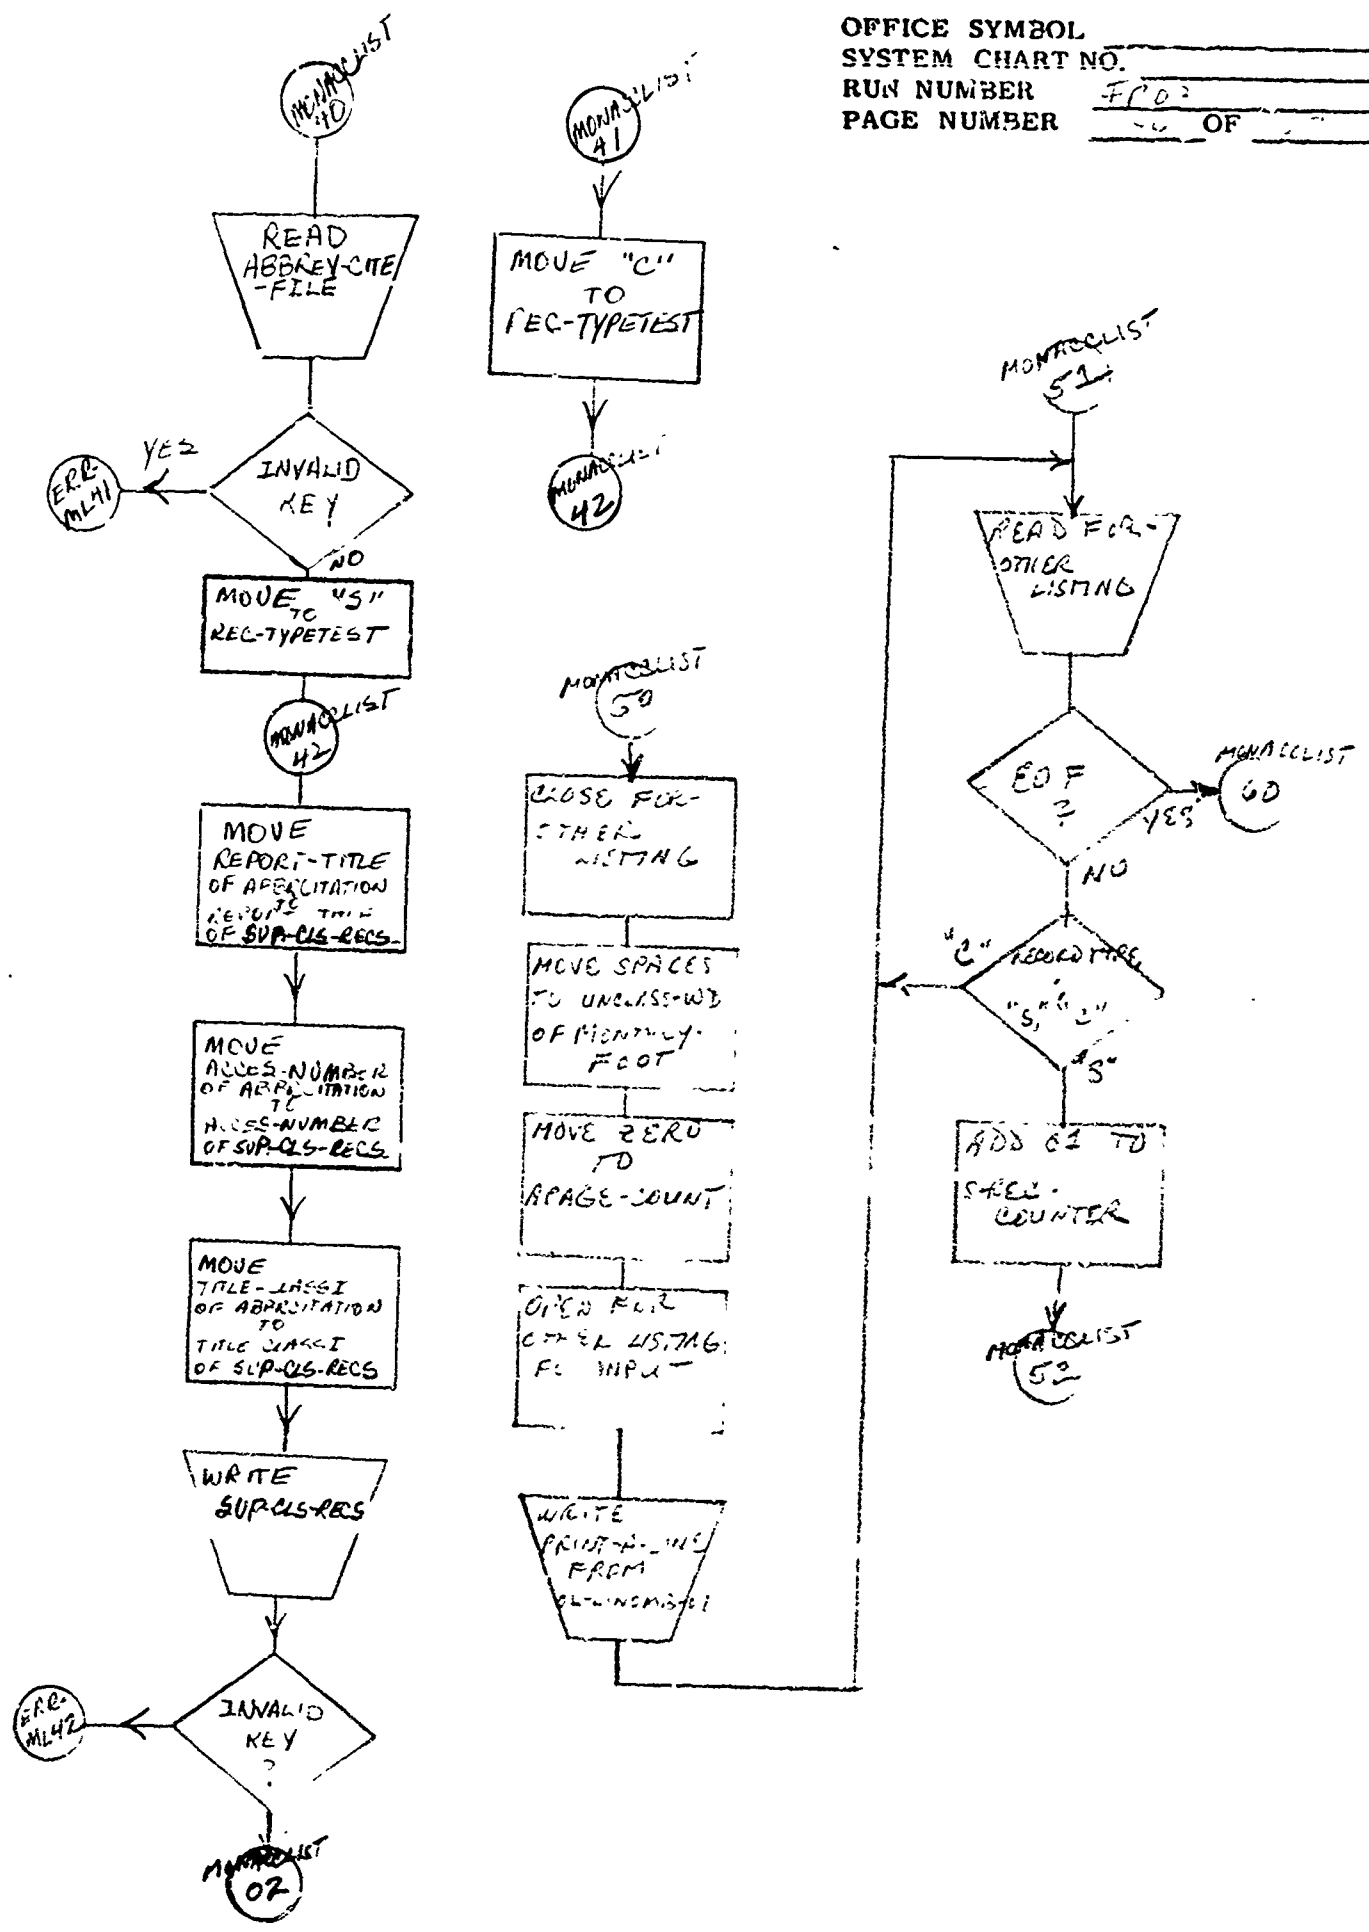 OFFICE SYMBOL
SYSTEM CHART NO.
RUN NUMBER
PAGE NUMBER OF
MONACCLIST
40
READ
ABBREV-CITE
-FILE
INVALID
KEY
YES
ERR-
ML41
NO
MOVE "S"
TO
REC-TYPETEST
MONACCLIST
42
MOVE
REPORT-TITLE
OF ABBRCITATION
TO
REPORT TITLE
OF SUP-CLS-RECS
MOVE
ACCES-NUMBER
OF ABBRCITATION
TO
ACCES-NUMBER
OF SUP-CLS-RECS
MOVE
TITLE-CLASSI
OF ABBRCITATION
TO
TITLE CLASSI
OF SUP-CLS-RECS
WRITE
SUP-CLS-RECS
INVALID
KEY
?
ERR-
ML42
MONACCLIST
02
MONACCLIST
41
MOVE "C"
TO
REC-TYPETEST
MONACCLIST
42
MONACCLIST
50
CLOSE FOR-
OTHER
LISTING
MOVE SPACES
TO UNCLASS-WD
OF MONTHLY-
FOOT
MOVE ZERO
TO
APAGE-COUNT
OPEN FOR
OTHER LISTING
INPUT
WRITE
PRINT-A-LINE
FROM
MONACCLIST
51
READ FOR-
OTHER
LISTING
EOF
?
YES
MONACCLIST
60
NO
RECORD TYPE
"S," "C"
"C"
"S"
ADD 01 TO
S-REC-
COUNTER
MONACCLIST
52